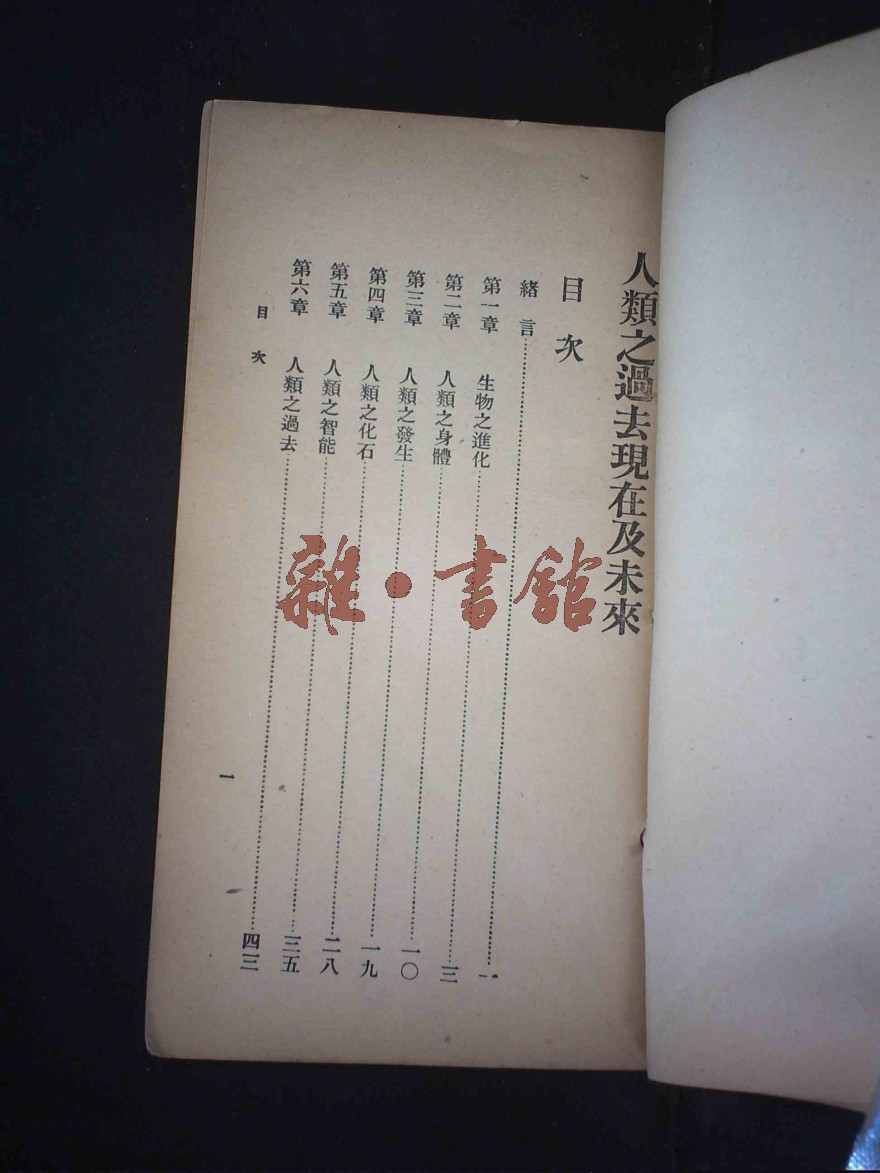 人類之過去現在及未來
目次
緒言……一
第一章 生物之進化……三
第二章 人類之身體……一〇
第三章 人類之發生……一九
第四章 人類之化石……二八
第五章 人類之智能……三五
第六章 人類之過去……四三
目次 一
雜·書館